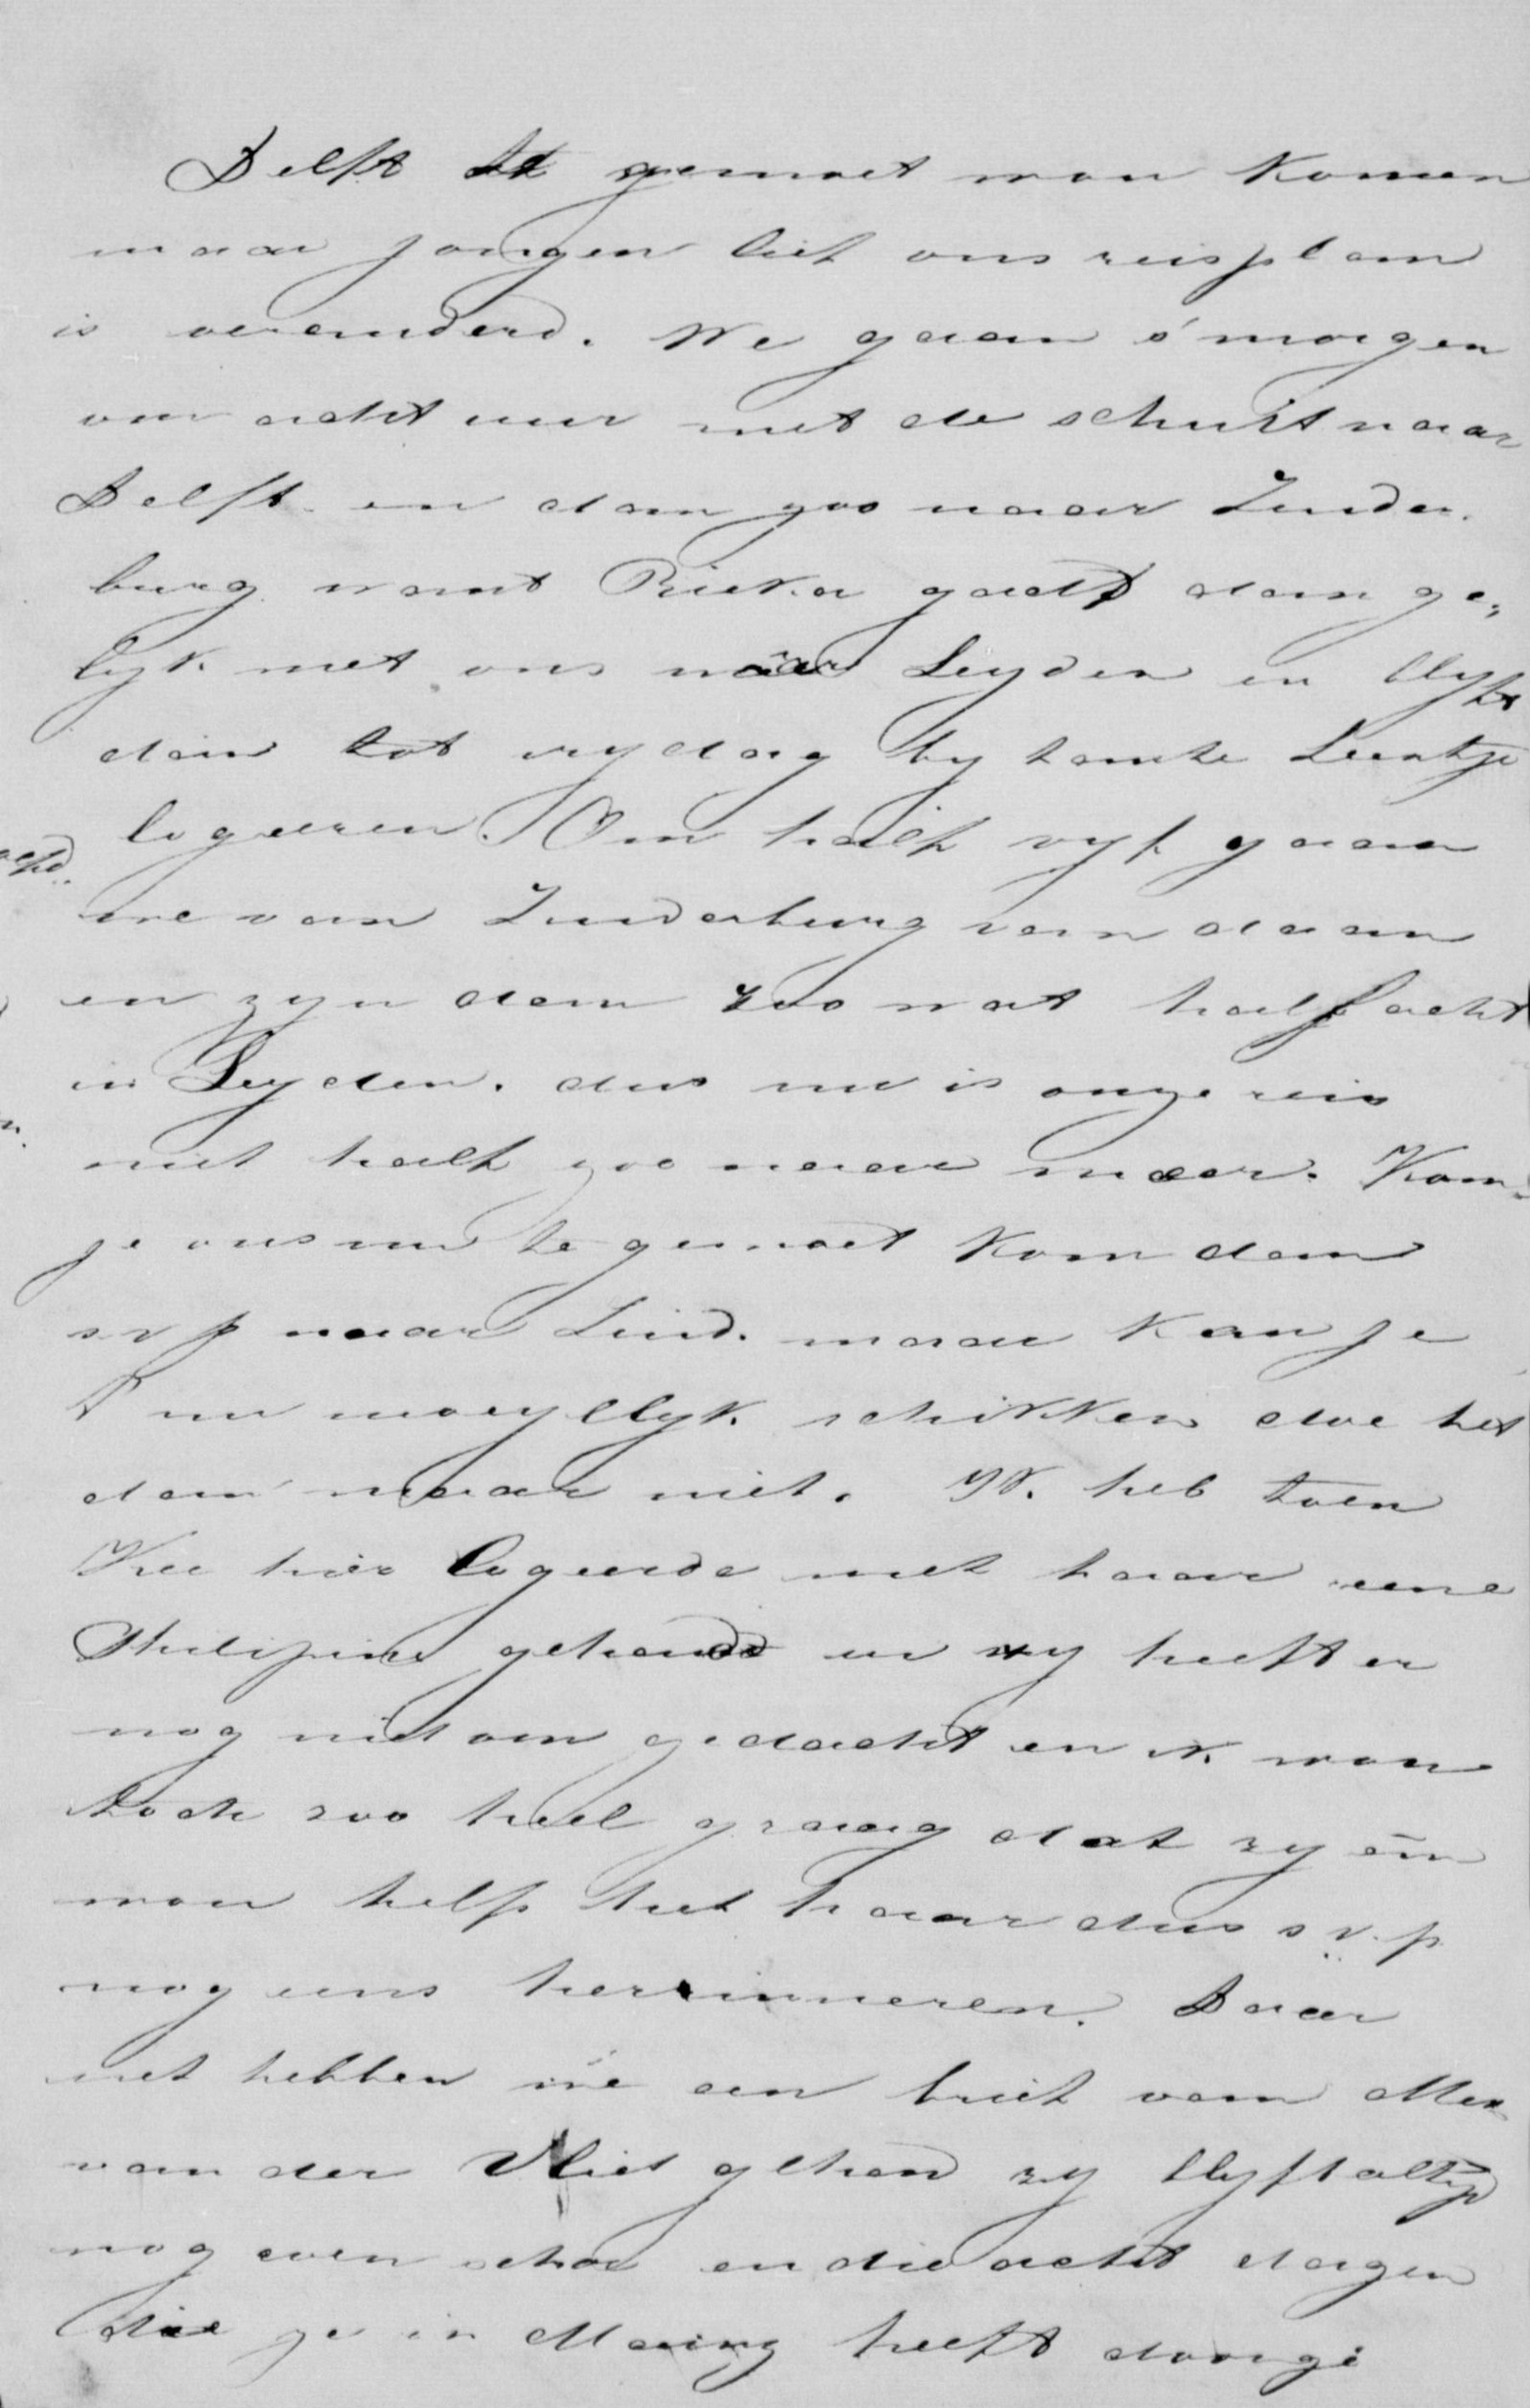 Delft te gemoet wou komen
maar jongen lief ons reisplan
is veranderd. We gaan s'morgen
om acht uur met de schuit naar
Delft en dan zoo naar Zuider.
burg want Rieka gaat dan ge,
lyk met ons naar Leyden en blyft
dan tot vrydag by tante Leentje
logeeren. Om half vyf gaan
we van Zuiderburg van daan
en zyn dan zoo wat half acht
in Leyden. dus nu is onze reis
niet half zoo naar meer. Kom
je ons nu te gemoet kom dan
s v p naar Zuid. maar kan je
't nu moeyelyk schikken doe het
dan maar niet. Ik heb toen
Kee hier logeerde met haar eene
Philipine gehad en zy heeft er
nog niet om gedacht en ik wou
toch zoo heel graag dat zy óm
wou help het haar dus s.v.p.
nog eens herinneren. Daar
net hebben we een brief van Mev
van der Vliet gehad zy blyft altyd
nog even
en die acht dagen
die ze in
heeft doorge